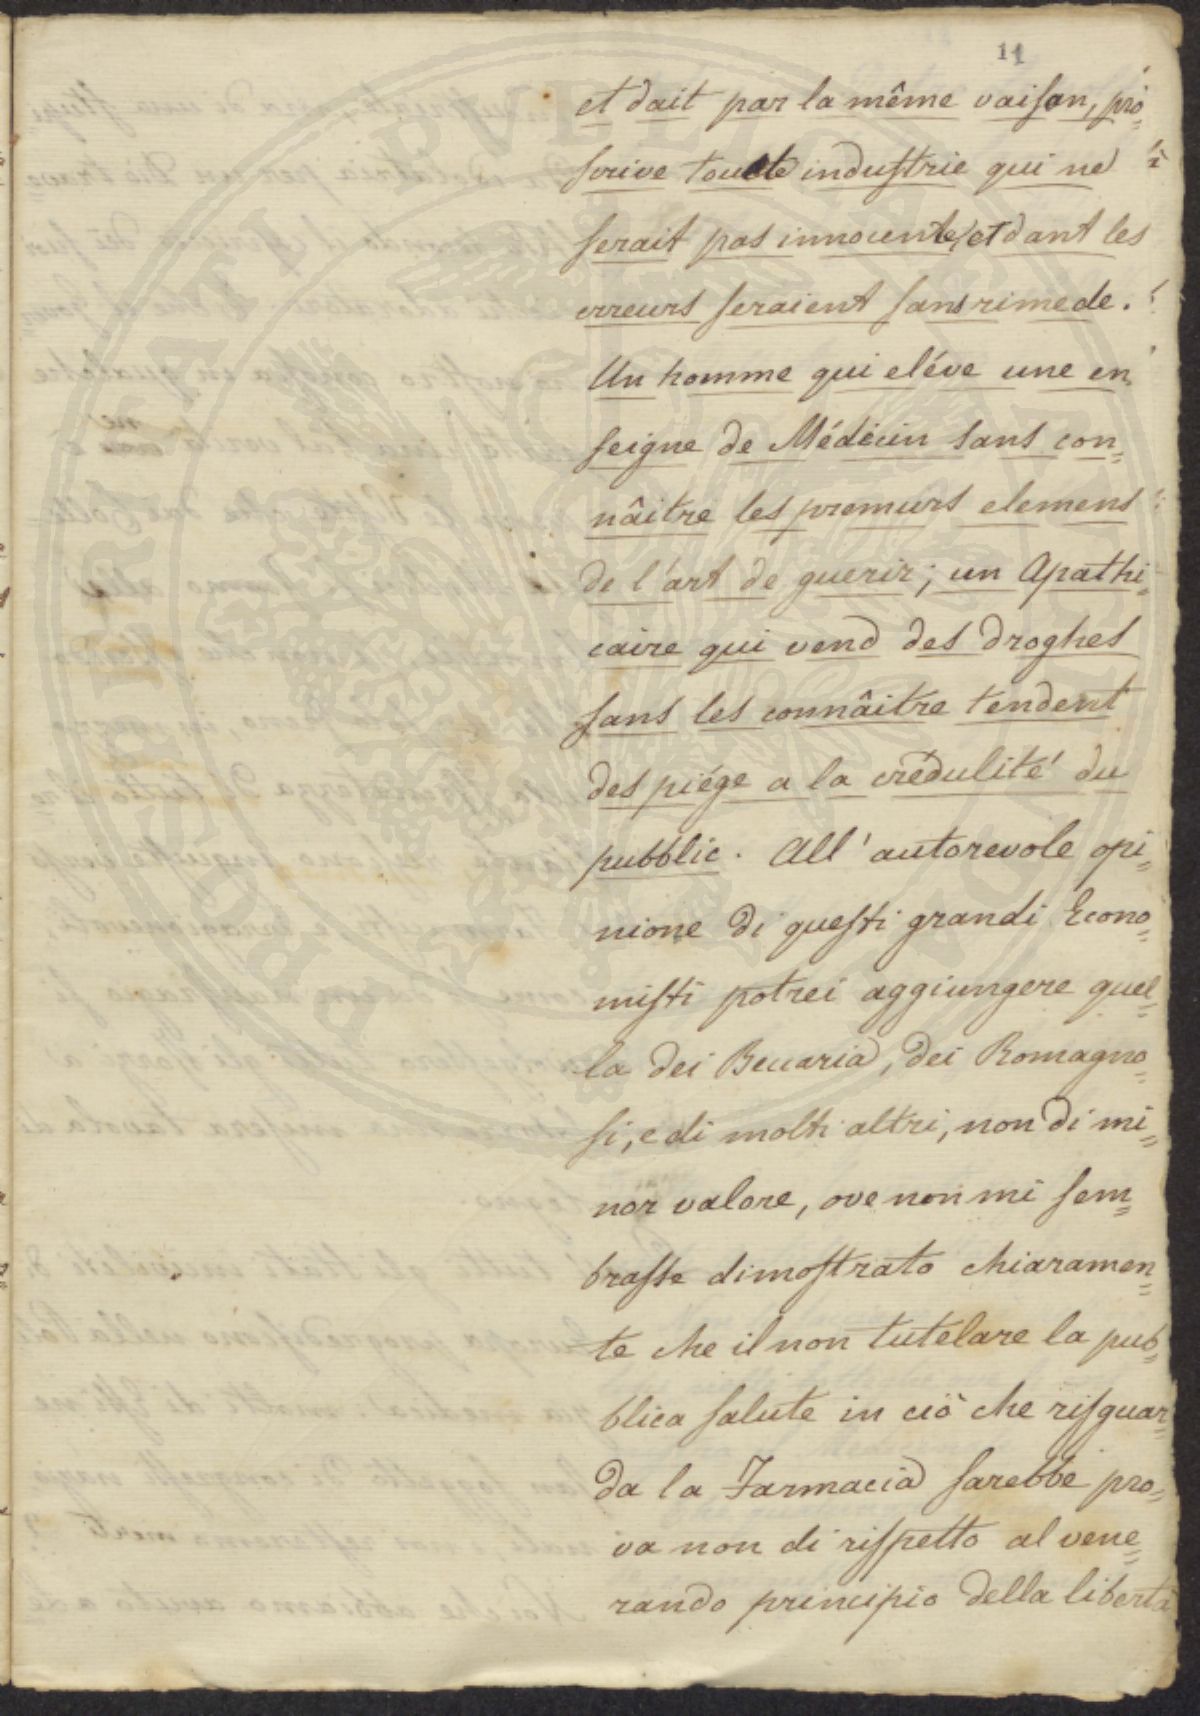 11
et dait par la même vaison, pro=
scrive toute industrie qui ne
serait pas innocente, et dant les
erreurs seraient sans rimede.
Un homme qui eléve une en
seigne de Médicin sans con=
nâitre les premiurs elemens
de l'art de guerir; un Apathi=
caire qui vend des droghes
sans les connâitre tendent
des piége a la crédulité du
pubblic. All'autorevole opi=
nione di questi grandi Econo=
misti potrei aggiungere quel=
la dei Beccaria, dei Romagno=
si, e di molti altri, non di mi=
nor valore, ove non mi sem=
brasse dimostrato chiaramen=
te che il non tutelare la pub=
blica salute in ciò che risguar=
da la Farmacia sarebbe pro=
va non di rispetto al vene=
rando principio della libertà